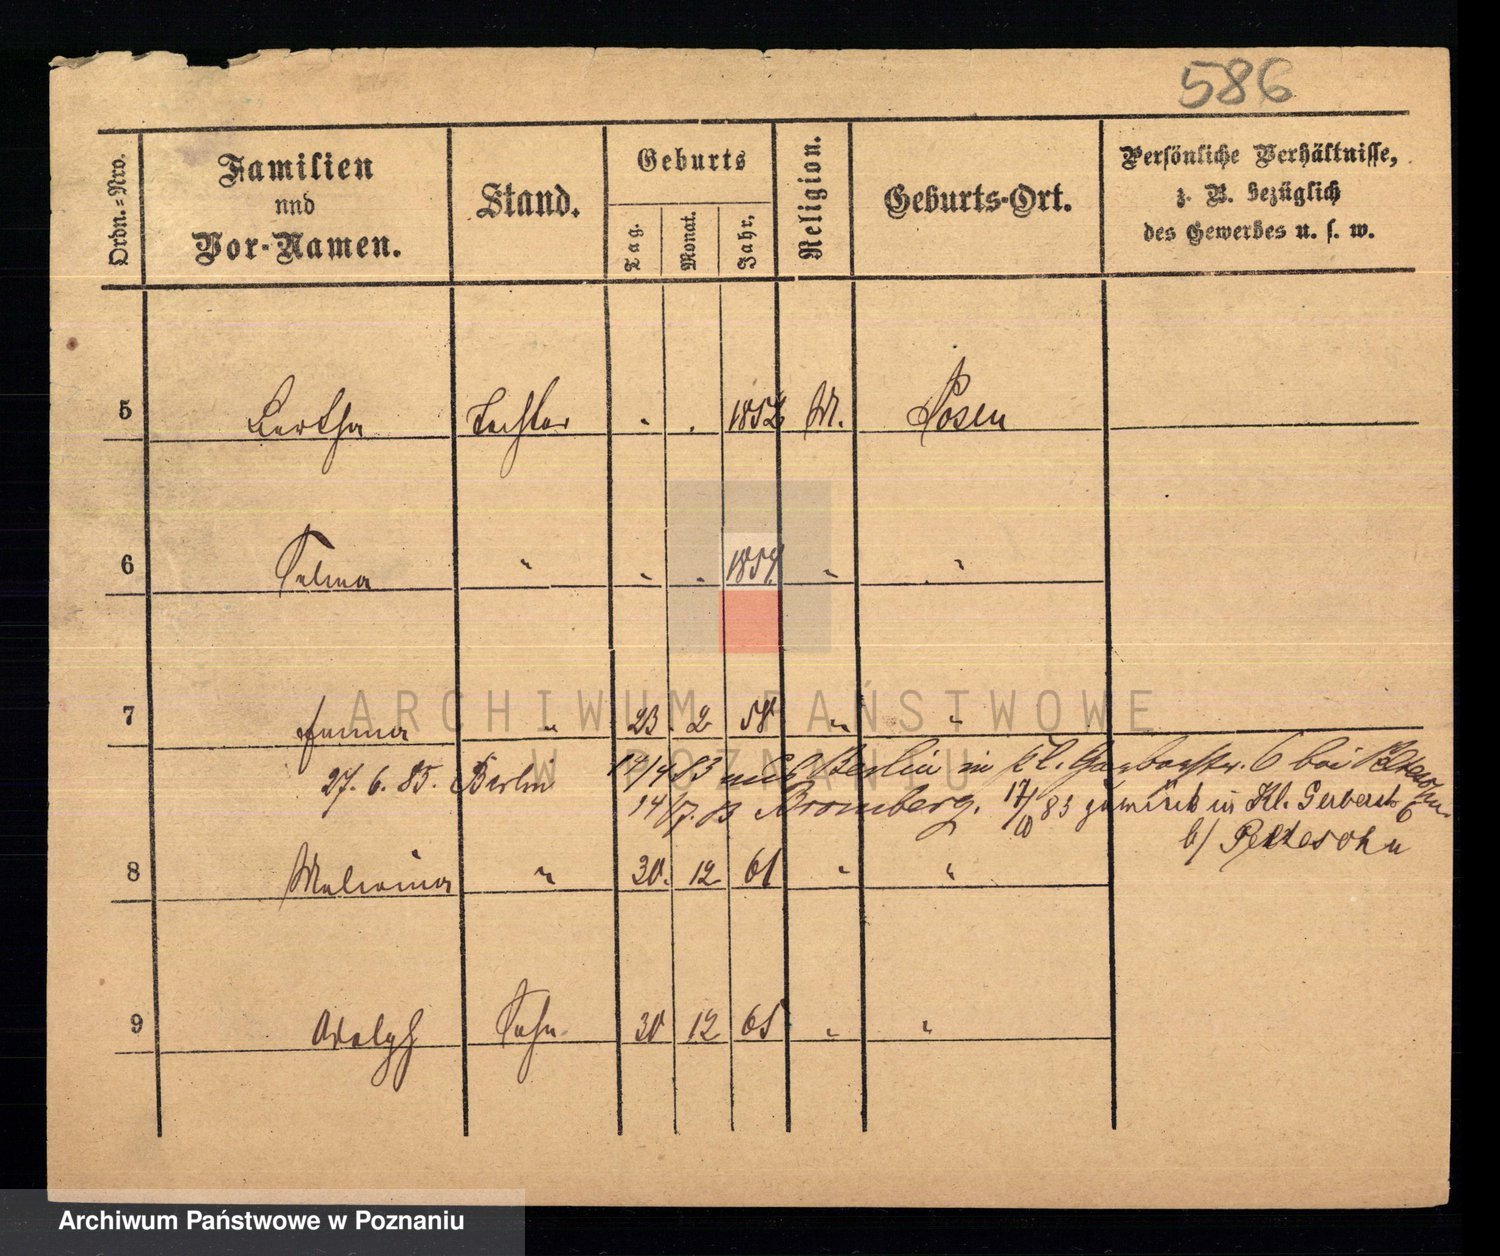 586
Ordn.-Nro.
Familien
und
Vor-Namen.
Stand.
Geburts
Tag.
Monat.
Jahr.
Religion.
Geburts-Ort.
Persönliche Verhältnisse,
z. B. bezüglich
des Gewerbes u. s. w.
5 Bertha Tochter " " 1852 M. Posen
6 Selma " " " 1857 " "
7 Emma " 23 2 58 " "
27. 6. 85. Berlin 14/4 83 aus Berlin in kl. Gerberstr. 6 bei
14/7. 83 Bromberg. 17/10 83 zurück in Kl. Gerberstr 6
b/ Peltesohn
8 Malwina " 30. 12 61 " "
9 Adolph Sohn 30 12 65 " "
ARCHIWUM PAŃSTWOWE
W POZNANIU
Archiwum Państwowe w Poznaniu